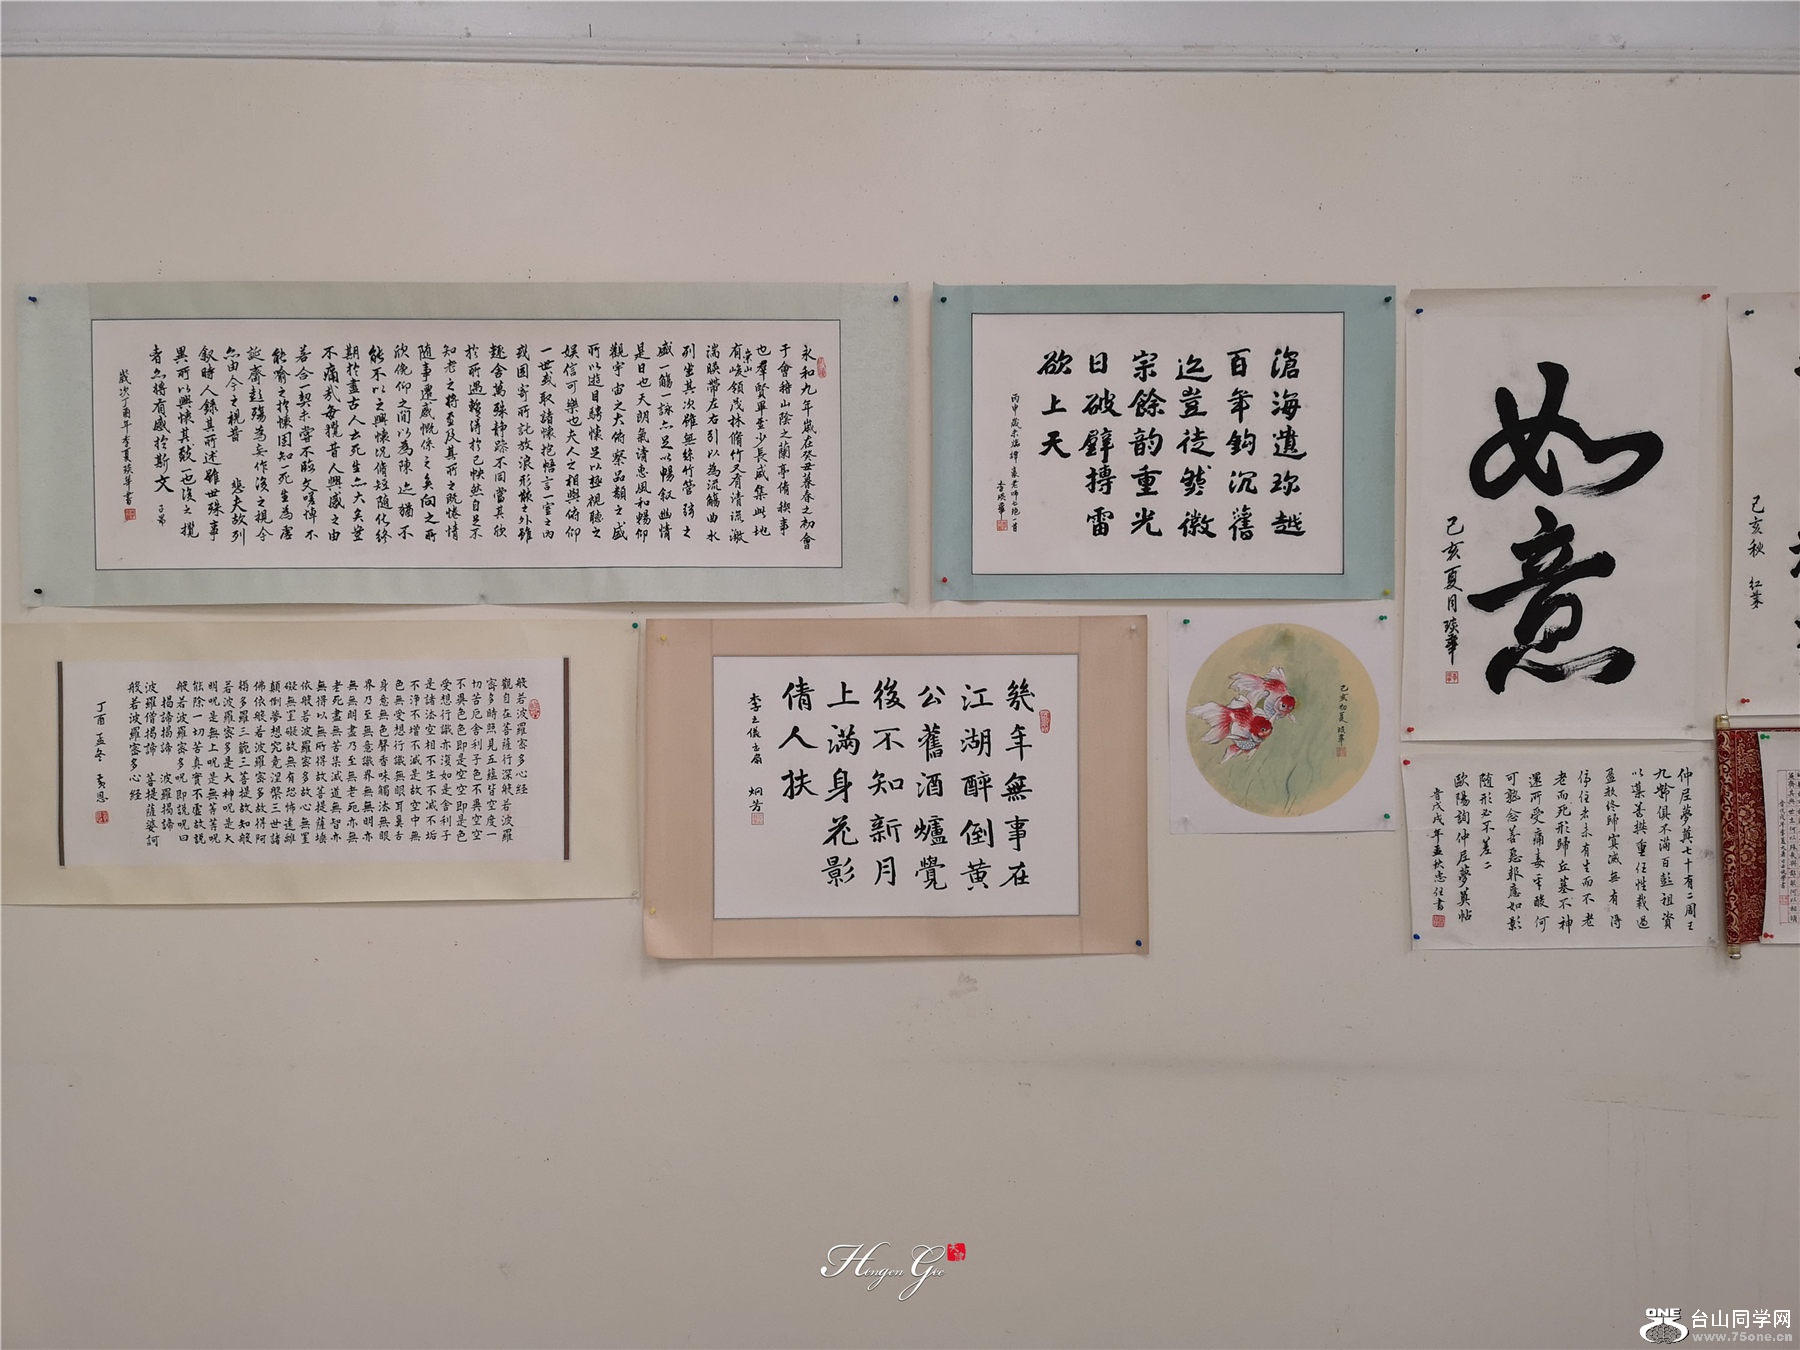 永和九年歲在癸丑暮春之初會
于會稽山陰之蘭亭脩稧事
也羣賢畢至少長咸集此地
有崇山峻領茂林脩竹又有清流激
湍暎帶左右引以為流觴曲水
列坐其次雖無絲竹管弦之
盛一觴一詠亦足以暢叙幽情
是日也天朗氣清惠風和暢仰
觀宇宙之大俯察品類之盛
所以遊目騁懷足以極視聽之
娛信可樂也夫人之相與俯仰
一世或取諸懷抱悟言一室之內
或因寄所託放浪形骸之外雖
趣舍萬殊靜躁不同當其欣
於所遇蹔得於己怏然自足不
知老之將至及其所之既惓情
隨事遷感慨係之矣向之所
欣俛仰之間以為陳迹猶不
能不以之興懷況脩短隨化終
期於盡古人云死生亦大矣豈
不痛哉每攬昔人興感之由
若合一契未嘗不臨文嗟悼不
能喻之於懷固知一死生為虛
誕齊彭殤為妄作後之視今
亦由今之視昔 悲夫故列
叙時人錄其所述雖世殊事
異所以興懷其致一也後之攬
者亦將有感於斯文
歲次丁酉年季夏瑛華書
滄海遺珍越
百年鈎沉舊
迄豈徒徽
宗餘韵重光
日破壁搏雷
欲上天
如意
己亥夏月瑛華
己亥秋 紅葉
般若波羅密多心经
觀自在菩薩行深般若波羅
密多時照見五蘊皆空度一
切苦厄舍利子色不異空空
不異色色即是空空即是色
受想行識亦復如是舍利子
是諸法空相不生不滅不垢
不淨不增不滅是故空中無
色無受想行識無眼耳鼻舌
身意無色聲香味觸法無眼
界乃至無意識界無無明亦
無無明盡乃至無老死亦無
老死盡無苦集滅道無智亦
無得以無所得故菩提薩埵
依般若波羅密多故心無罣
礙無罣礙故無有恐怖遠離
顛倒夢想究竟涅槃三世諸
佛依般若波羅密多故得阿
耨多羅三藐三菩提故知般
若波羅密多是大神呪是大
明呪是無上呪是無等等呪
能除一切苦真實不虛故說
般若波羅密多呪即説呪曰
揭諦揭諦 波羅揭諦
波羅僧揭諦 菩提薩婆訶
般若波羅密多心经
丁酉孟冬
幾年無事在
江湖醉倒黃
公舊酒爐覺
後不知新月
上滿身花影
倩人扶
己亥初夏瑛華
仲尼夢奠七十有二周王
九齡俱不滿百彭祖資
以導養樊重任性裁過
盈數終歸寂滅無有得
停住者未有生而不老
老而死形歸丘墓不神
還所受痛毒辛酸何
可熟念善惡報應如影
隨形必不差二
歐陽詢仲尼夢奠帖
Hengen Gee
ONE
台山同学网
www.75one.cn